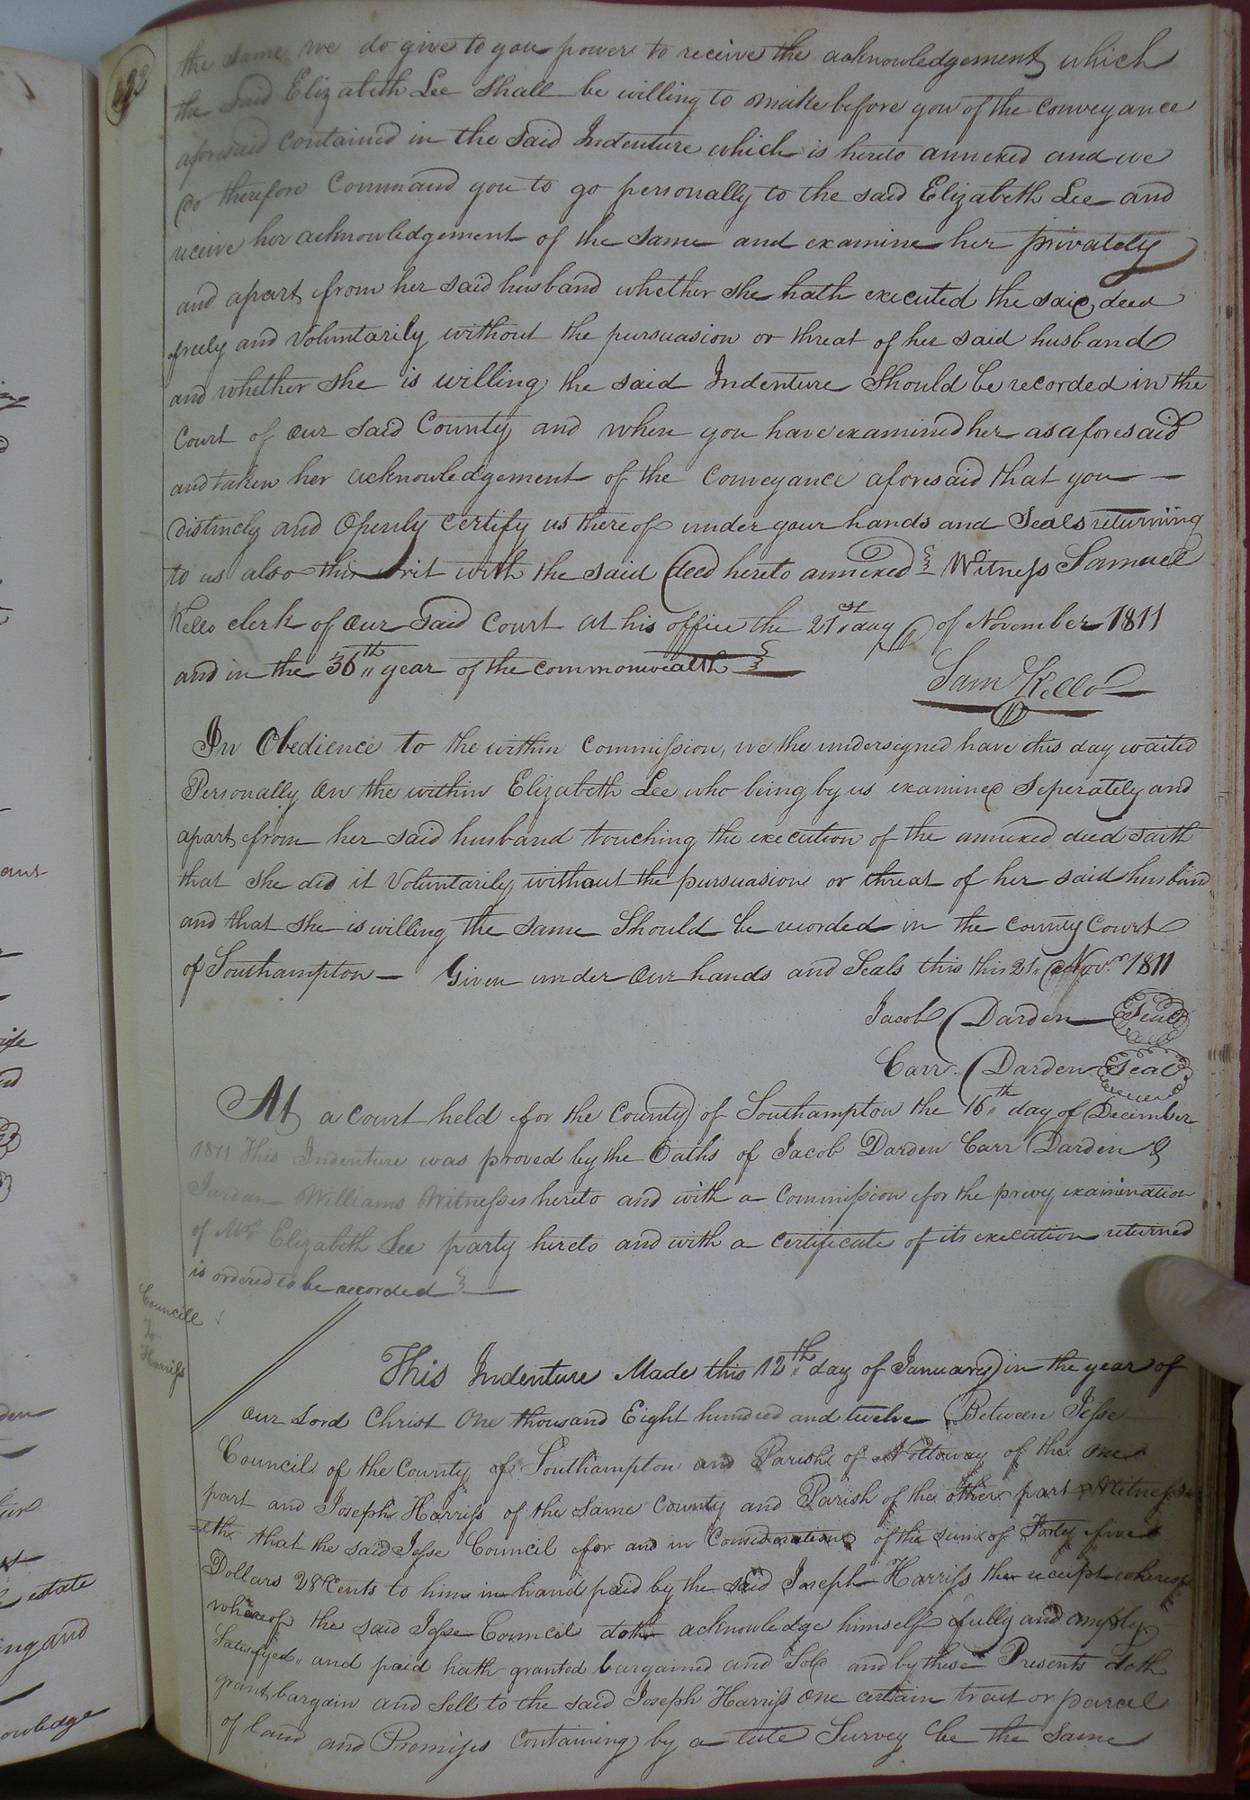 the same we do give to you power to receive the acknowledgement which
the said Elizabeth Lee Shall be willing to make before you of the conveyance
aforesaid contained in the said Indenture which is hereto annexed and we
do therefore Command you to go personally to the said Elizabeth Lee and
receive her acknowledgement of the same and examine her privately
and apart from her said husband whether she hath executed the said deed
freely and Voluntarily without the pursuasion or threat of her said husband
and whether she is willing the said Indenture Should be recorded in the
Court of our said County and when you have examined her as aforesaid
and taken her acknowledgement of the Conveyance aforesaid that you
distincly and Openly certify us thereof under your hands and Seals returning
to us also this writ with the said deed hereto annexed Witness Samuel
Kello clerk of our Said Court at his office the 21st day of November 1811
and in the 36th year of the commonwealth
Sam Kello
In Obedience to the within Commission, we the undersigned have this day waited
Personally on the within Elizabeth Lee who being by us examined Seperately and
apart from her said husband touching the execution of the annexed deed saith
that she did it Voluntarily without the pursuasion or threat of her said husband
and that she is willing the same Should be recorded in the County Court
of Southampton — Given under our hands and Seals this this 21 Novr 1811
Jacob Darden Seal
Carr Darden Seal
At a court held for the County of Southampton the 16th day of December
1811 This Indenture was proved by the Oaths of Jacob Darden Carr Darden &
Jordan Williams Witnesses hereto and with a Commission for the privy examination
of Mrs Elizabeth Lee party hereto and with a certificate of its execution returned
is ordered to be recorded
Councill
To
Harriss
This Indenture Made this 12th day of January in the year of
our Lord Christ One thousand Eight hundred and twelve Between Jesse
Council of the County of Southampton and Parish of Nottoway of the one
part and Joseph Harriss of the same County and Parish of the other part Witness
eth that the said Jesse Council for and in Consideration of the sum of Forty five
Dollars 28 Cents to him in hand paid by the said Joseph Harriss the receipt whereof
whereof the said Jesse Council doth acknowledge himself fully and amply
Satisfyed and paid hath granted bargained and Sold and by these Presents doth
grant bargain and Sell to the said Joseph Harriss one certain tract or parcel
of land and Premises Containing by a late Survey be the same